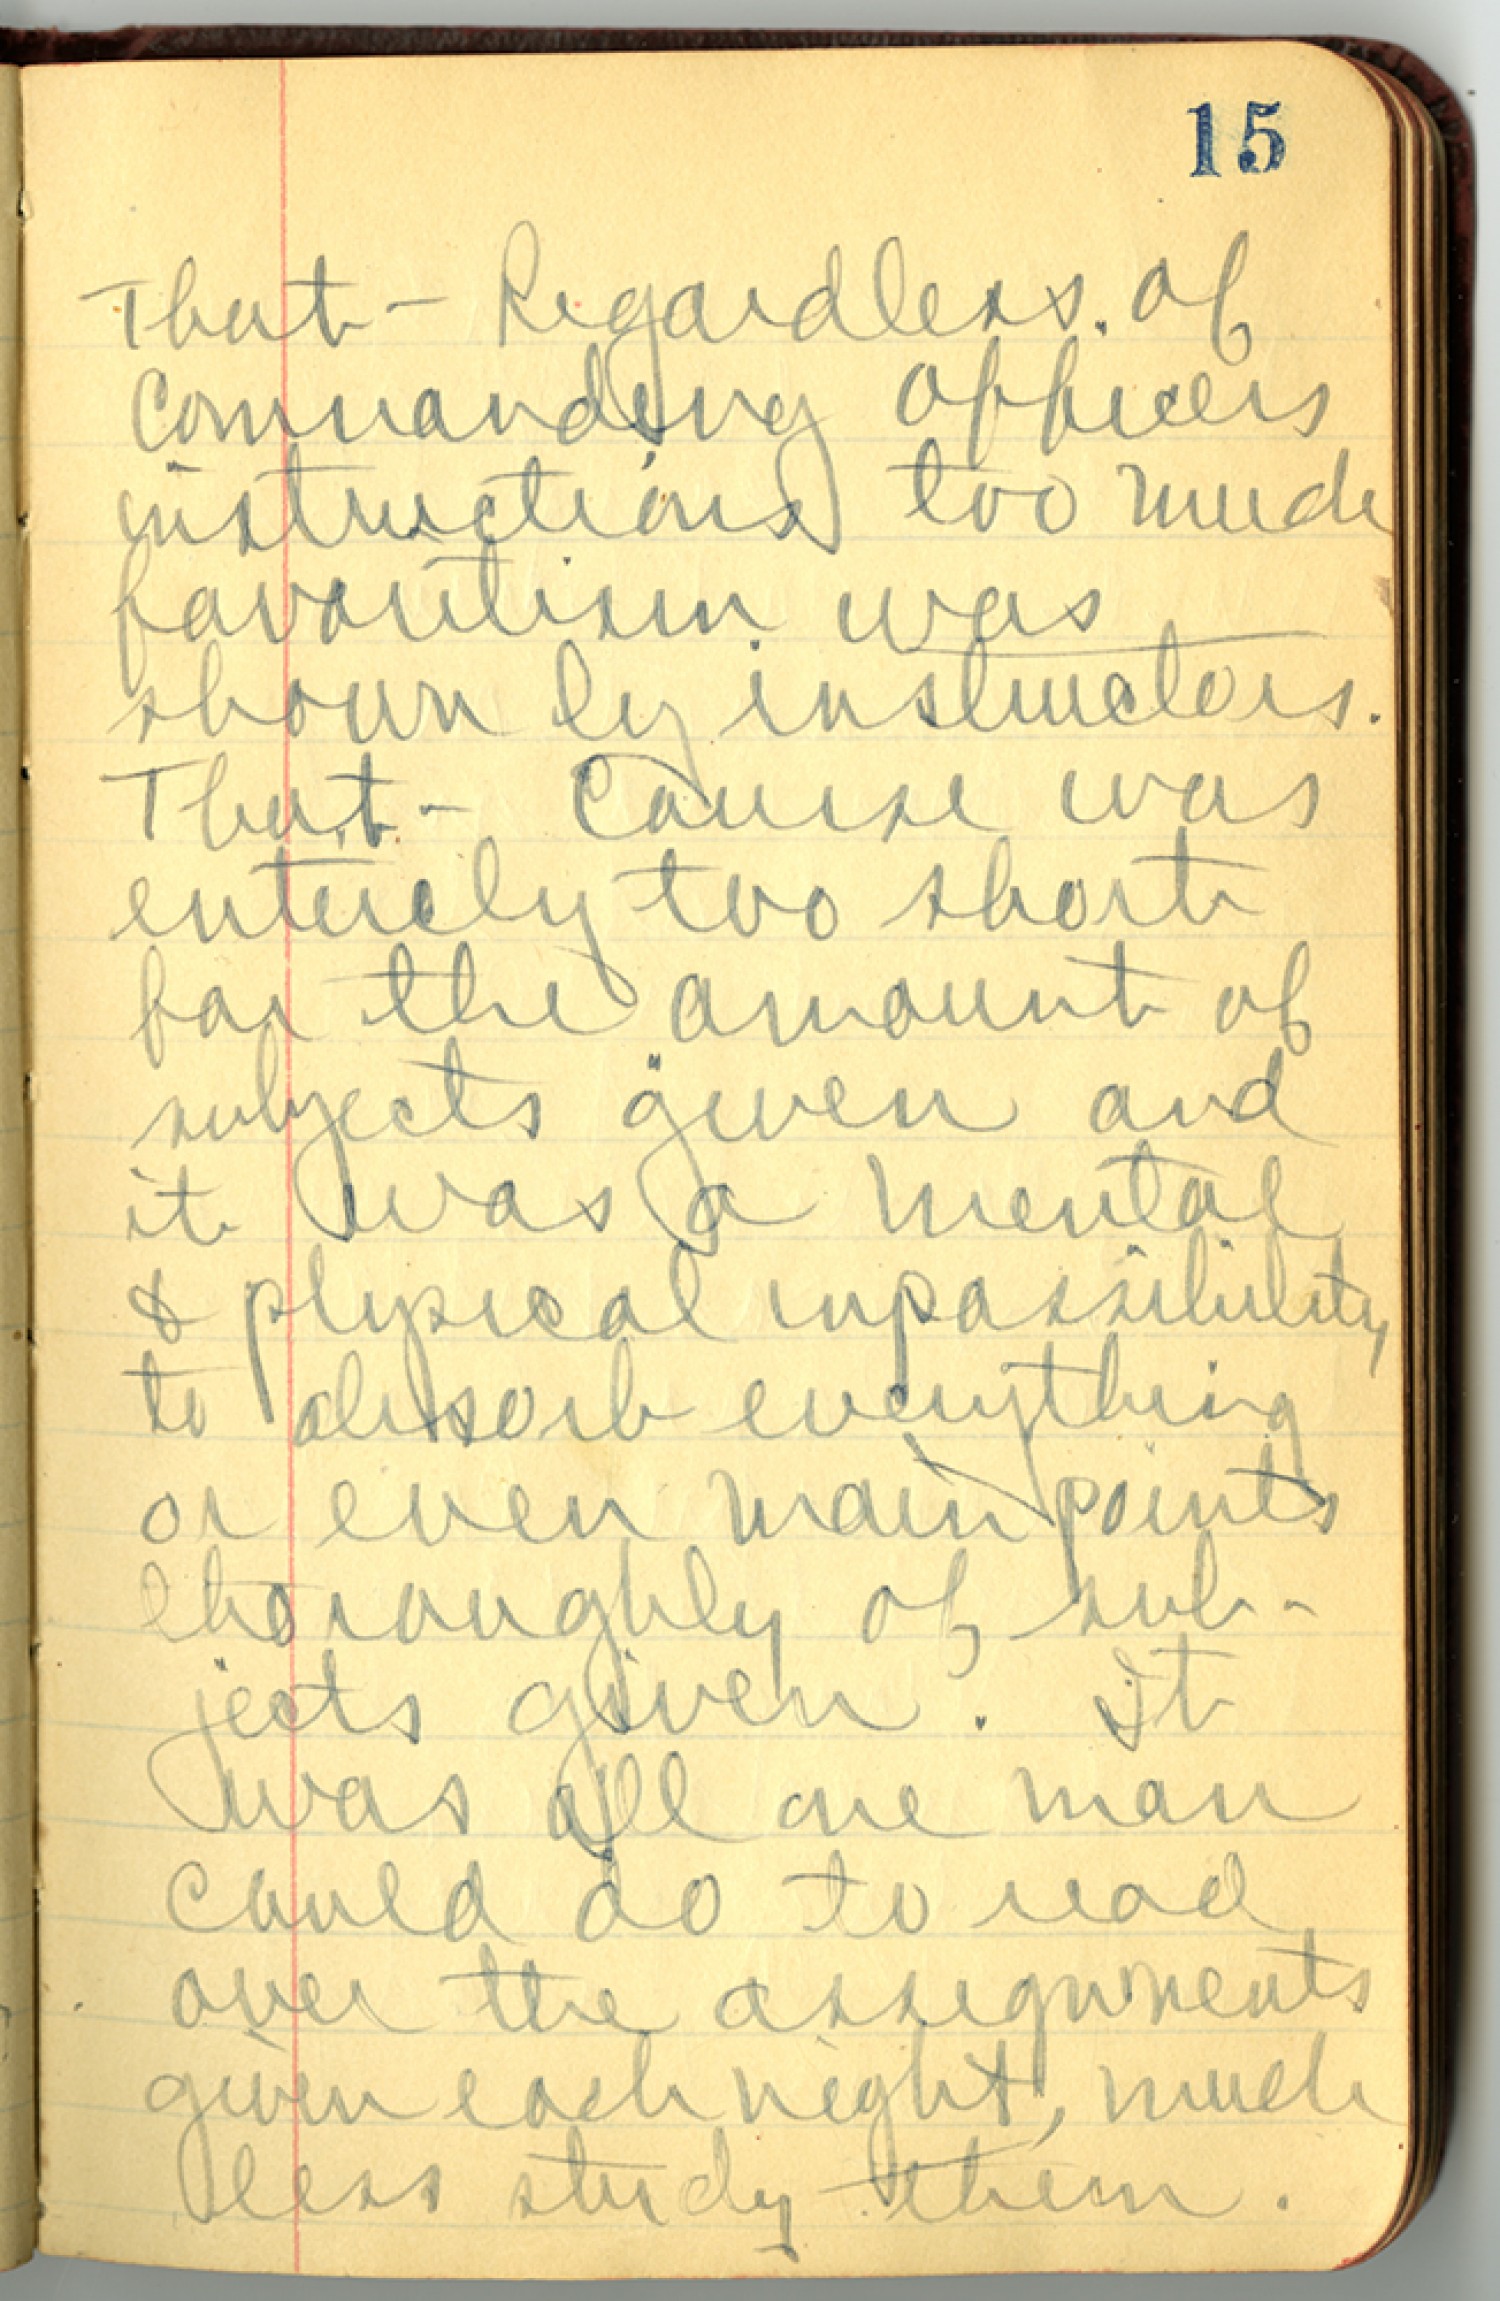 15
That - Regardless of
Commanding Officers
instructions too much
favoritism was
shown by instructors.
That - Course was
entirely too short
for the amount of
subjects given and
it was a mental
& physical impossibility
to absorb everything
or even main points
thoroughly of sub-
jects given. It
was all one man
could do to read
over the assignments
given each night, much
less study them.